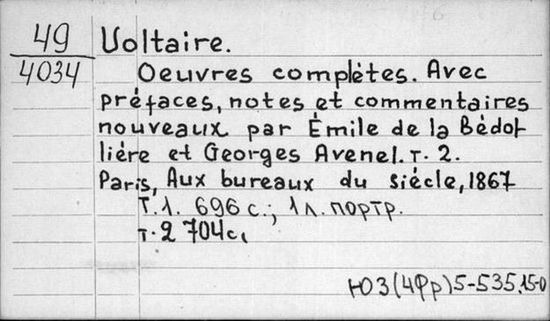 49
4034
Voltaire.
Oeuvres complètes. Avec
préfaces, notes et commentaires
nouveaux par Émile de la Bédol
lière et Georges Avenel. т. 2.
Paris, Aux bureaux du siécle, 1867
Т.1. 696 с.; 1 л. портр.
т.2 704с,
Ю3(4Фр)5-535.15-0